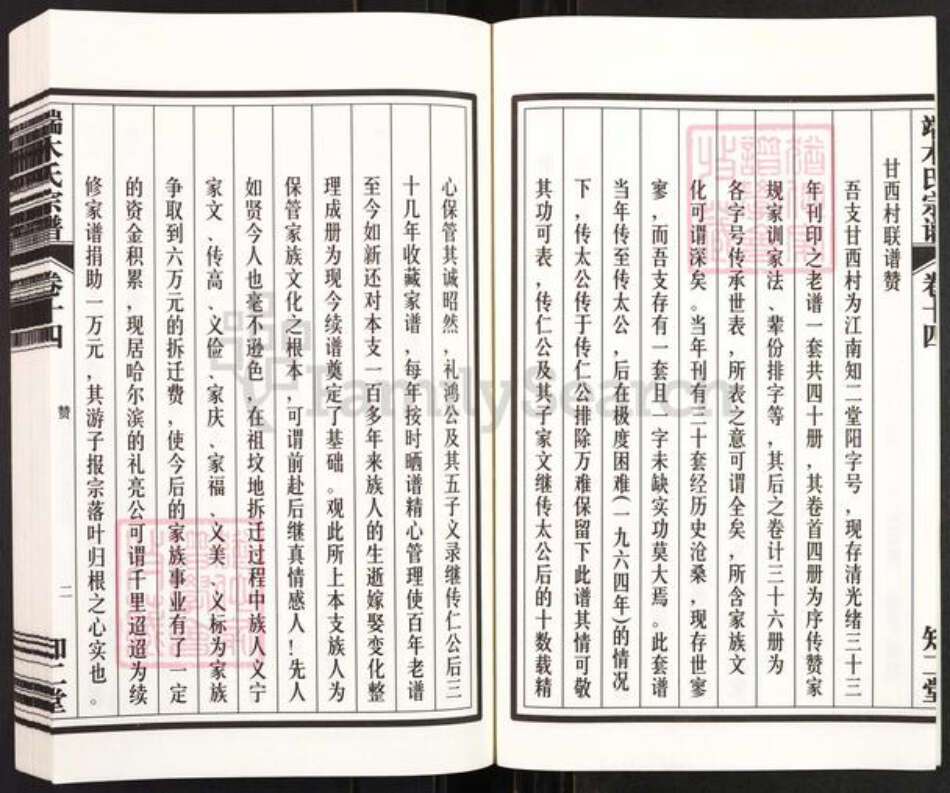 甘西村联谱赞
吾支甘西村为江南知二堂阳字号，现存清光绪三十三
年刊印之老谱一套共四十册，其卷首四册为序传赞家
规家训家法、辈份排字等，其后之卷计三十六册为
各字号传承世表，所表之意可谓全矣，所含家族文
化可谓深矣。当年刊有二十套经历史沧桑，现存世寥
寥，而吾支存有一套且一字未缺实功莫大焉。此套谱
当年传至传太公，后在极度困难(一九六四年)的情况
下，传太公传于传仁公排除万难保留下此谱其情可敬
其功可表，传仁公及其子家文继传太公后的十数载精
心保管其诚昭然，礼鸿公及其五子义录继传仁公后三
十几年收藏家谱，每年按时晒谱精心管理使百年老谱
至今如新还对本支一百多年来族人的生逝嫁娶变化整
理成册为现今续谱奠定了基础。观此所上本支族人为
保管家族文化之根本，可谓前赴后继真情感人！先人
如贤今人也毫不逊色，在祖坟地拆迁过程中族人义宁
家文、传高、义俭、家庆、家福、义美、义标为家族
争取到六万元的拆迁费，使今后的家族事业有了一定
的资金积累，现居哈尔滨的礼亮公可谓千里迢迢为续
修家谱捐助一万元，其游子报宗落叶归根之心实也。
端木氏宗谱
卷十四
赞
二
知二堂
端木氏宗谱
卷十四
知二堂
FamilySearch